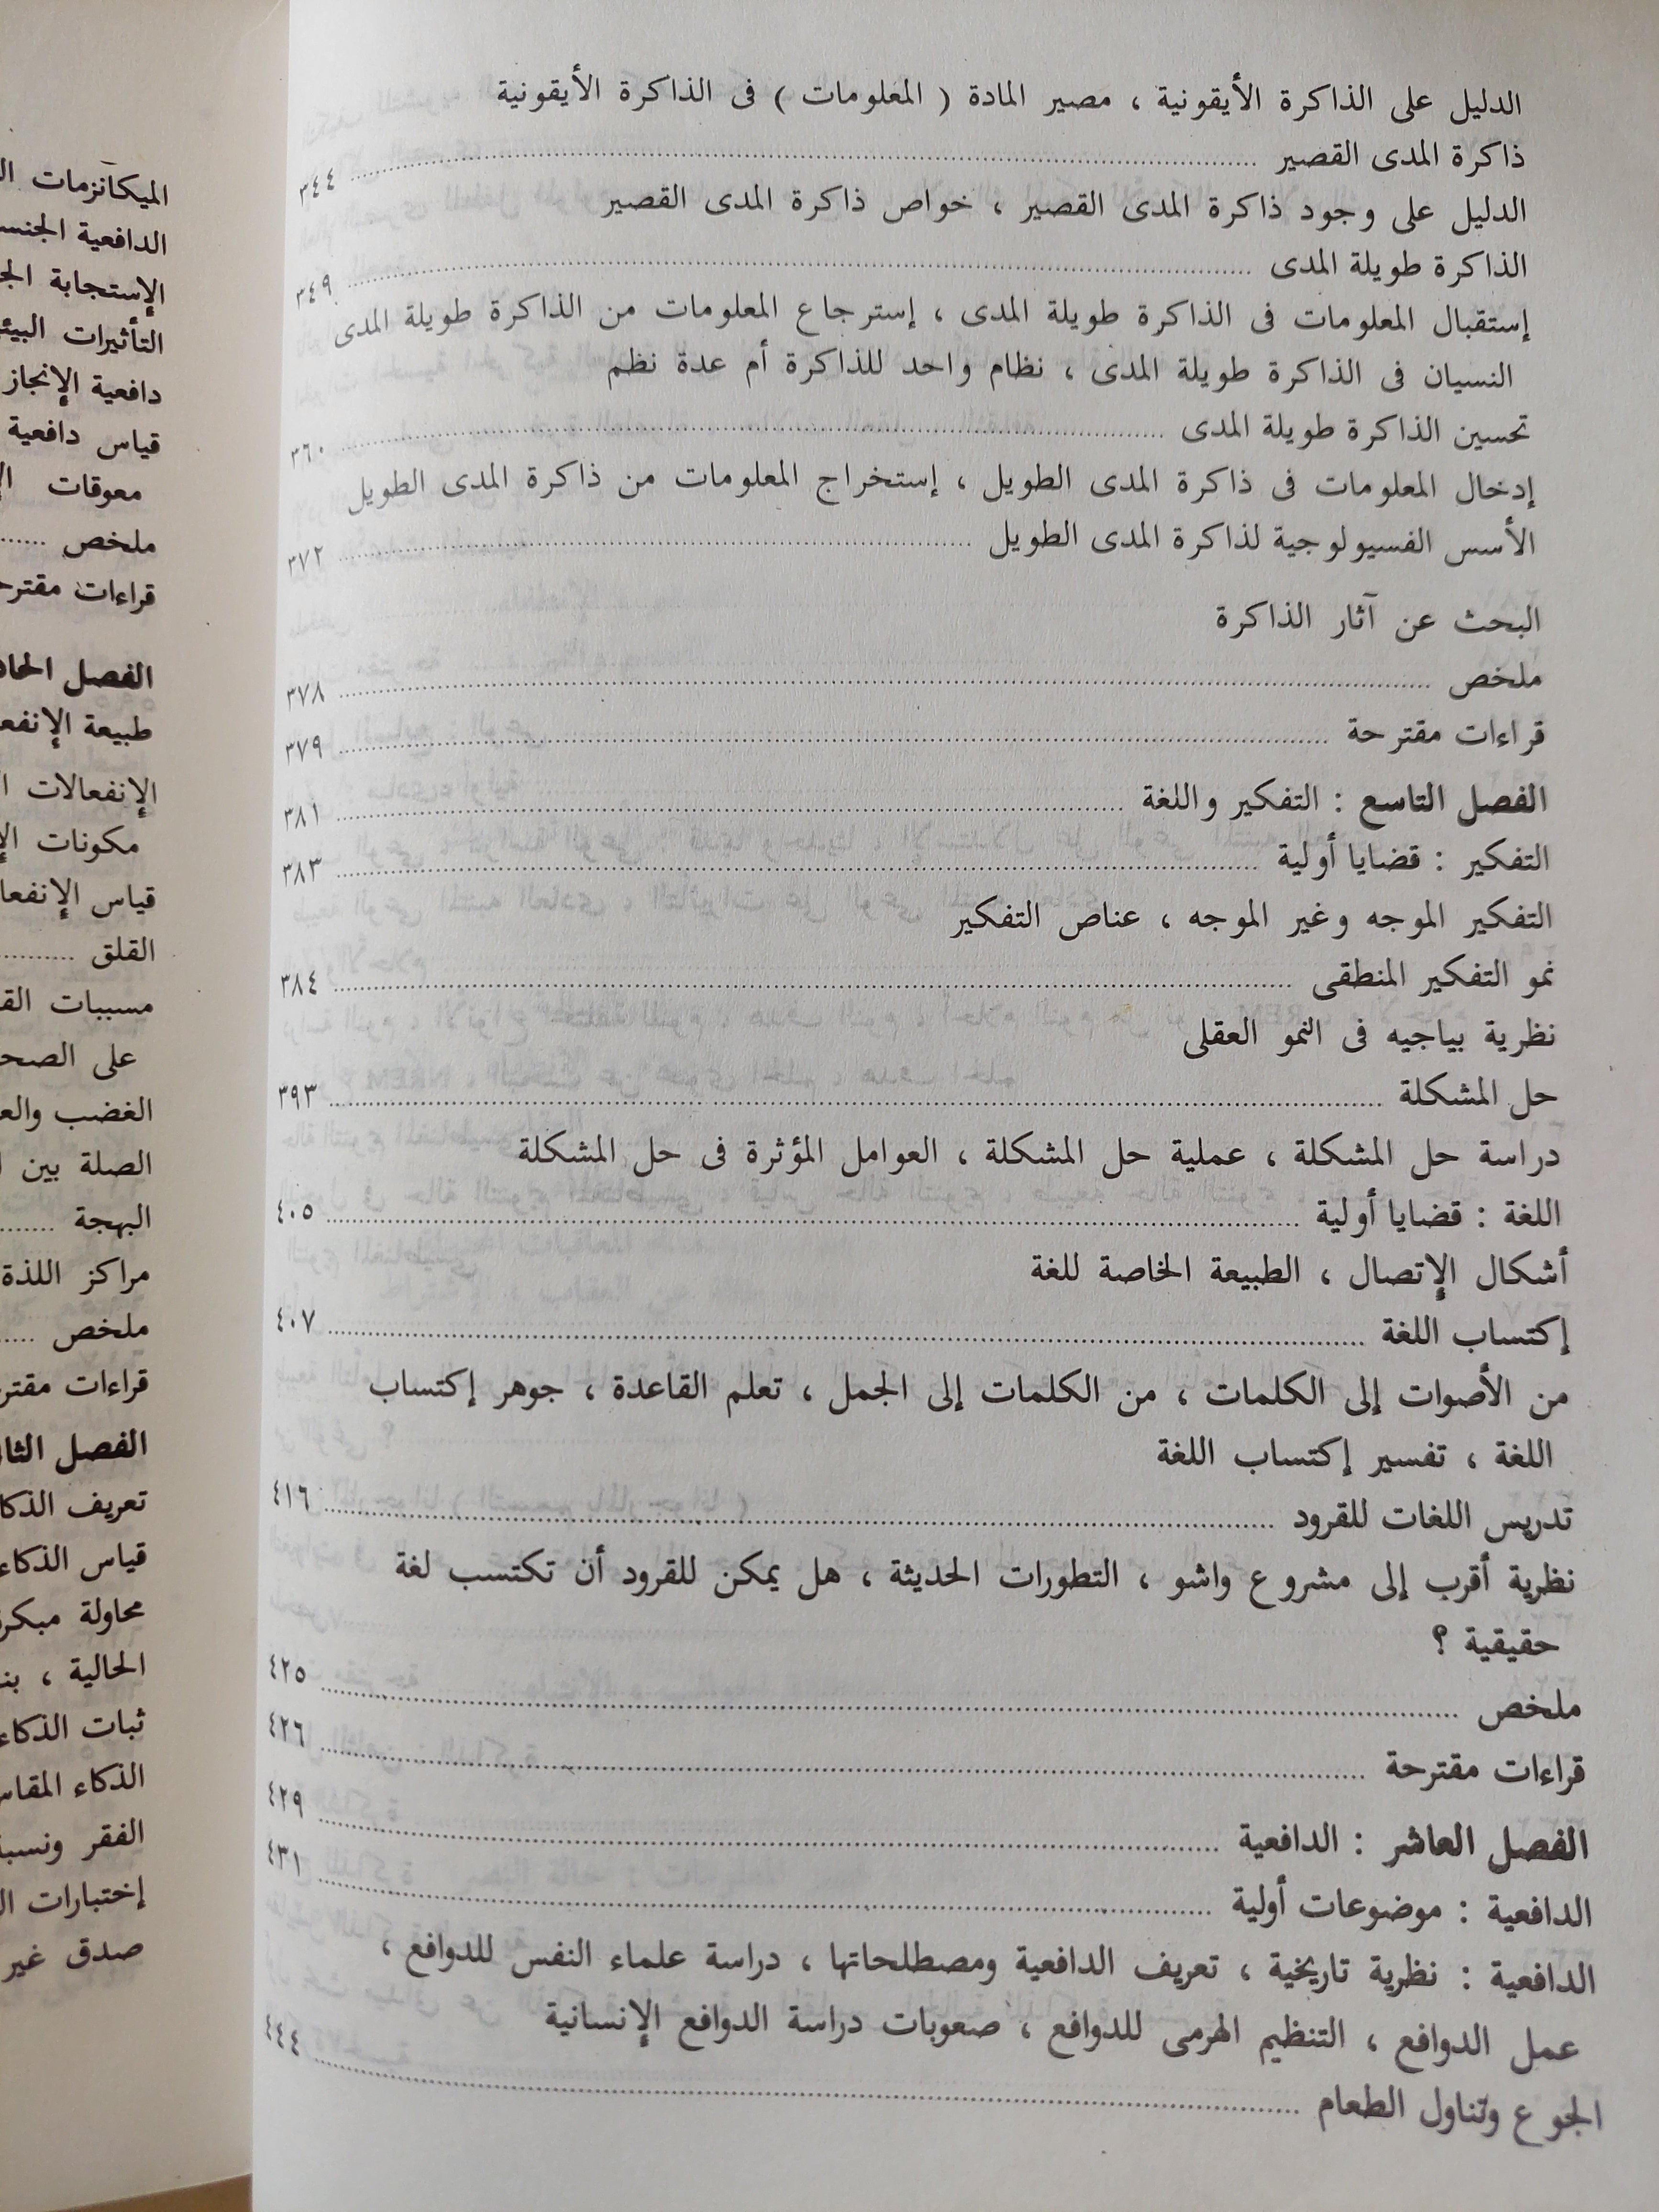 الدليل على الذاكرة الأيقونية ، مصير المادة ( المعلومات ) فى الذاكرة الأيقونية
ذاكرة المدى القصير ........ ٣٤٤
الدليل على وجود ذاكرة المدى القصير ، خواص ذاكرة المدى القصير
الذاكرة طويلة المدى ........ ٣٤٩
إستقبال المعلومات فى الذاكرة طويلة المدى ، إسترجاع المعلومات من الذاكرة طويلة المدى
النسيان فى الذاكرة طويلة المدى ، نظام واحد للذاكرة أم عدة نظم
تحسين الذاكرة طويلة المدى ........ ٣٦٠
إدخال المعلومات فى ذاكرة المدى الطويل ، إستخراج المعلومات من ذاكرة المدى الطويل
الأسس الفسيولوجية لذاكرة المدى الطويل ........ ٣٧٢
البحث عن آثار الذاكرة
ملخص ........ ٣٧٨
قراءات مقترحة ........ ٣٧٩
الفصل التاسع : التفكير واللغة ........ ٣٨١
التفكير : قضايا أولية ........ ٣٨٣
التفكير الموجه وغير الموجه ، عناص التفكير
نمو التفكير المنطقى ........ ٣٨٤
نظرية بياجيه فى النمو العقلى
حل المشكلة ........ ٣٩٣
دراسة حل المشكلة ، عملية حل المشكلة ، العوامل المؤثرة فى حل المشكلة
اللغة : قضايا أولية ........ ٤٠٥
أشكال الإتصال ، الطبيعة الخاصة للغة
إكتساب اللغة ........ ٤٠٧
من الأصوات إلى الكلمات ، من الكلمات إلى الجمل ، تعلم القاعدة ، جوهر إكتساب
اللغة ، تفسير إكتساب اللغة
تدريس اللغات للقرود ........ ٤١٦
نظرية أقرب إلى مشروع واشو ، التطورات الحديثة ، هل يمكن للقرود أن تكتسب لغة
حقيقية ؟
ملخص ........ ٤٢٥
قراءات مقترحة ........ ٤٢٦
الفصل العاشر : الدافعية ........ ٤٢٩
الدافعية : موضوعات أولية ........ ٤٣١
الدافعية : نظرية تاريخية ، تعريف الدافعية ومصطلحاتها ، دراسة علماء النفس للدوافع ،
عمل الدوافع ، التنظيم الهرمى للدوافع ، صعوبات دراسة الدوافع الإنسانية
الجوع وتناول الطعام ........ ٤٤٤
الميكانزمات
الدافعية
الإستجابة
التأثيرات
دافعية الإنجاز
قياس دافعية
معوقات
ملخص ........
قراءات
الفصل
طبيعة
الإنفعالات
مكونات
قياس
القلق ........
مسببات
على
الغضب
الصلة بين
البهجة ........
مراكز اللذة
ملخص ........
قراءات
الفصل
تعريف
قياس الذكاء
محاولة
الحالية ،
ثبات الذكاء
الذكاء
الفقر
إختبارات
صدق غير